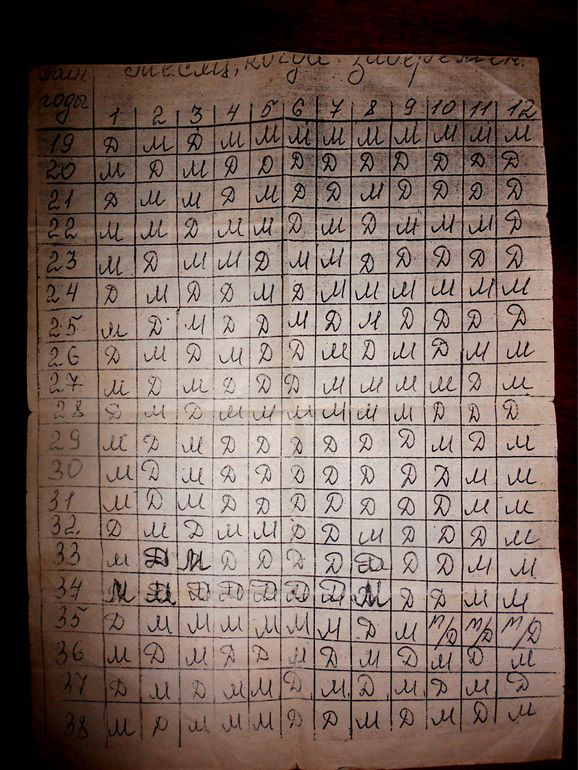 Полн. Месяц, когда заберемен.
годы 1 2 3 4 5 6 7 8 9 10 11 12
19 Д М Д М М М М М М М М М
20 М Д М Д Д Д Д Д Д Д Д Д
21 Д М М Д М Д Д М Д Д Д Д
22 М М Д М М Д М Д М М М Д
23 М Д М М Д М М Д Д Д Д Д
24 Д М Д Д М Д М М М М М М
25 М Д М Д Д М Д М Д Д Д Д
26 Д М Д М Д Д М Д М Д М М
27 М Д М Д Д Д М М М М Д М
28 Д М Д М М М М М М Д Д Д
29 М Д М Д Д Д Д Д Д М Д М
30 М Д М Д Д Д Д Д Д Д М М
31 М Д М Д Д Д Д Д Д Д М М
32 Д М Д М М Д Д М Д Д Д М
33 М Д М Д Д Д Д Д Д Д М М
34 М Д Д Д Д Д М Д Д М М
35 Д М М М М М М Д М М/Д М/Д М/Д
36 М Д М Д Д М Д М Д М Д М
37 Д М Д М М Д М Д М Д М Д
38 М Д М М М Д Д М Д М Д М